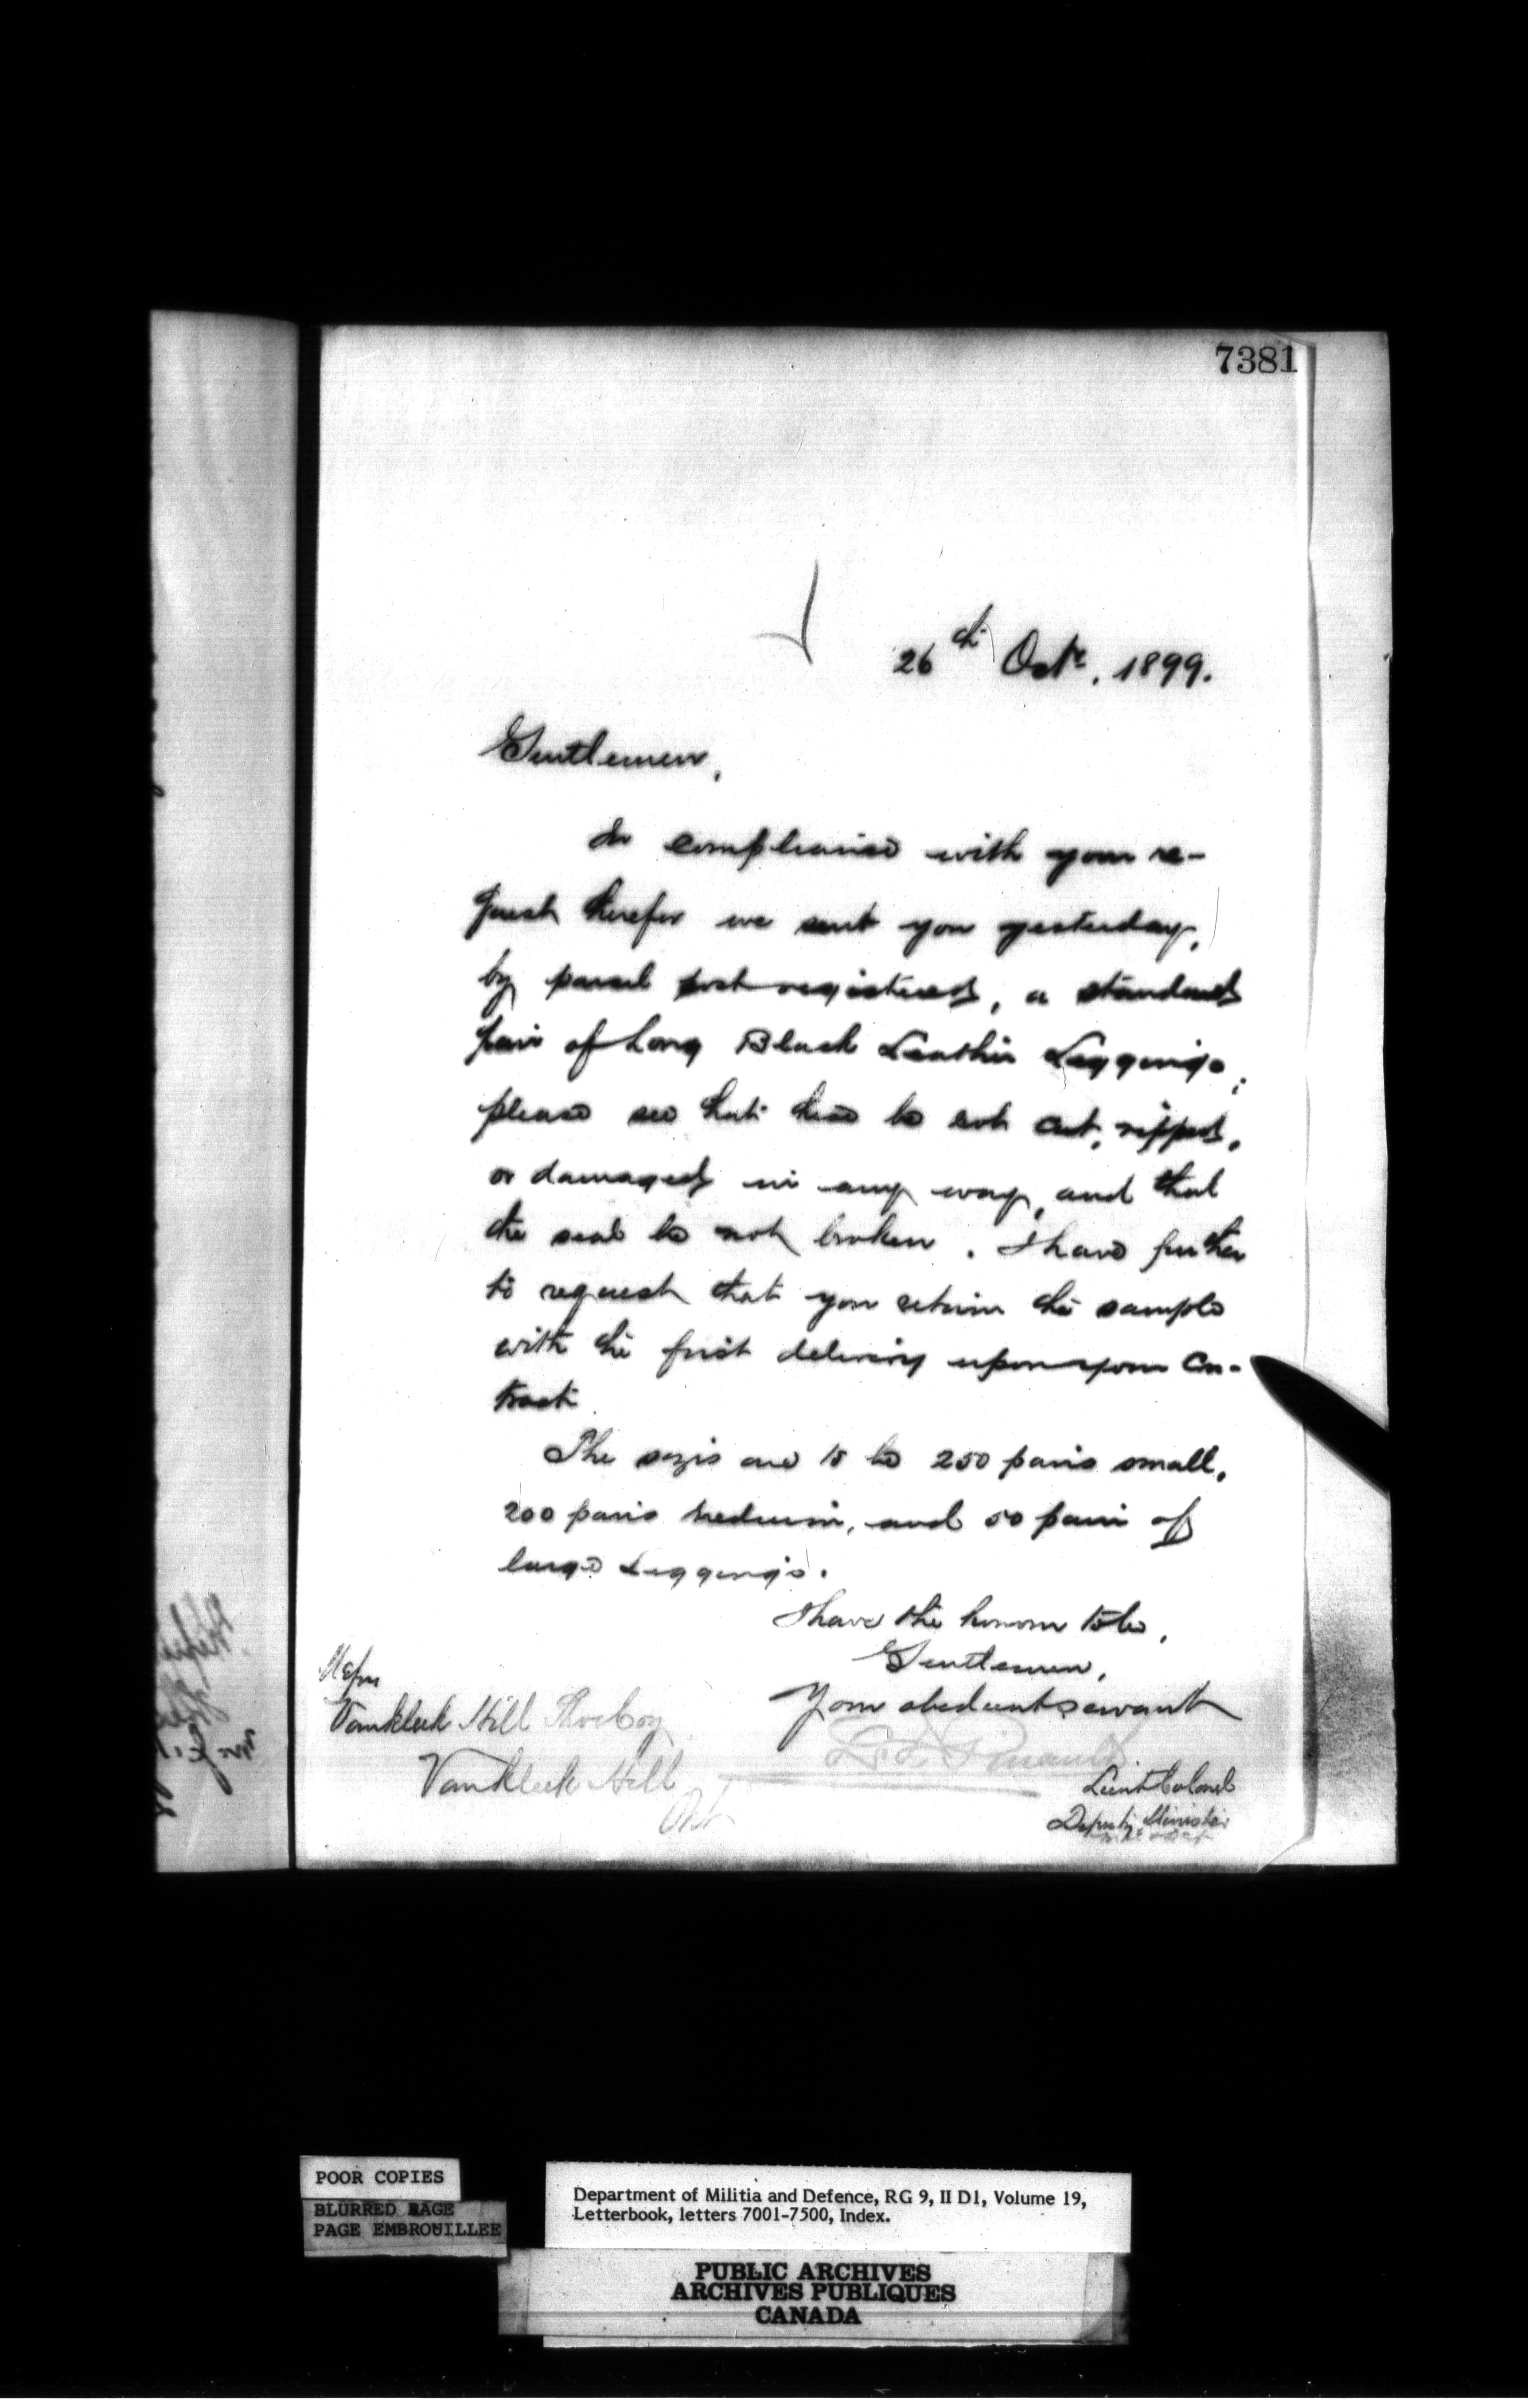 7381
26th Octr. 1899.
Gentlemen,
In compliance with your re-
quest therefor we sent you yesterday,
by parcel post registered, a standard
pair of Long Black Leather Leggings;
please see that these be not cut, ripped,
or damaged in any way, and that
the seal be not broken. I have further
to request that you return the sample
with the first delivery upon your con-
tract.
The sizes are to be 250 pairs small,
200 pairs medium, and 50 pair of
large Leggings.
I have the honour to be,
Gentlemen,
Your obedient servant
L. F. Pinault
Lieut Colonel
Deputy Minister
Messrs
Vankleek Hill Shoe Coy
Vankleek Hill
Ont
POOR COPIES
BLURRED PAGE
PAGE EMBROUILLEE
Department of Militia and Defence, RG 9, II D1, Volume 19,
Letterbook, letters 7001-7500, Index.
PUBLIC ARCHIVES
ARCHIVES PUBLIQUES
CANADA